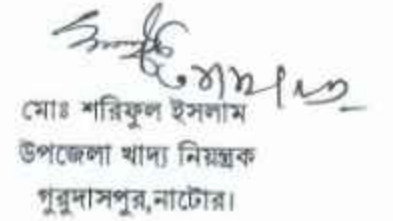 মোঃ শরিফুল ইসলাম
উপজেলা খাদ্য নিয়ন্ত্রক
গুরুদাসপুর,নাটোর।